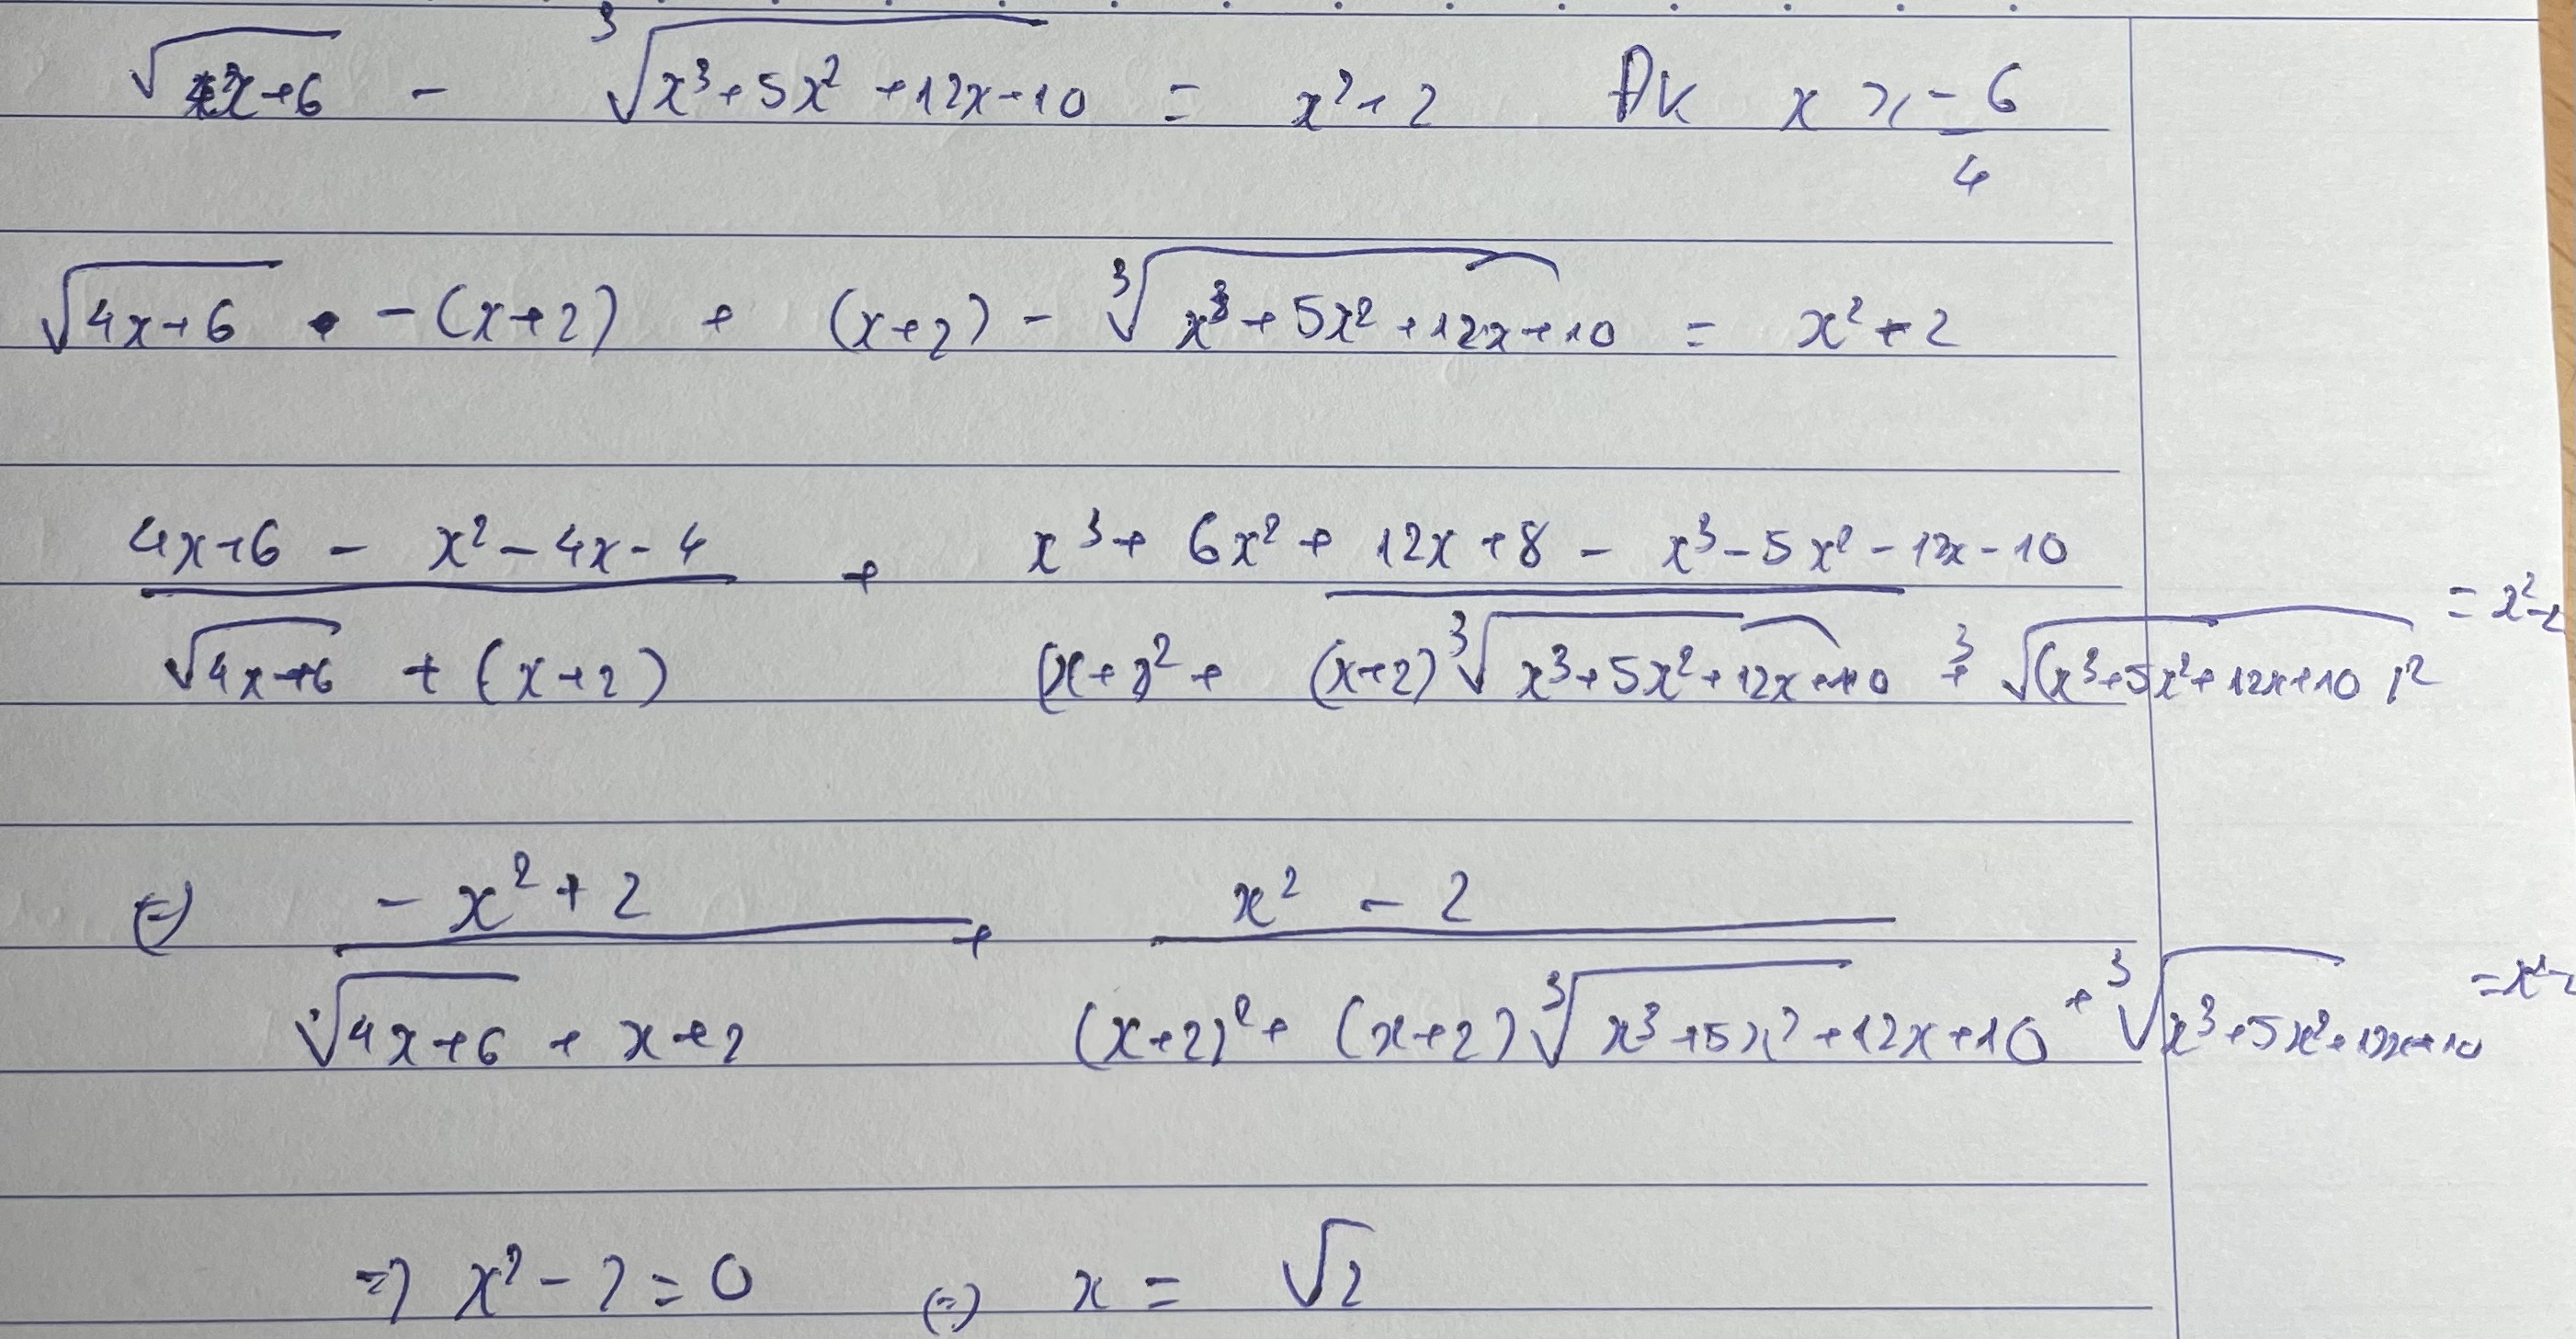 √(4x+6) - ∛(x³+5x²+12x+10) = x²+2 ĐK x ≥ -6/4
√(4x+6) - (x+2) + (x+2) - ∛(x³+5x²+12x+10) = x²+2
(4x+6 - x² - 4x - 4)/(√(4x+6) + (x+2)) + (x³+6x²+12x+8 - x³ - 5x² - 12x - 10)/((x+2)² + (x+2)∛(x³+5x²+12x+10) + ∛(x³+5x²+12x+10)²) = x²-2
(=) (-x²+2)/(√(4x+6) + x+2) + (x²-2)/((x+2)² + (x+2)∛(x³+5x²+12x+10) + ∛(x³+5x²+12x+10)) = x²-2
=> x²-2=0 (=) x = √2